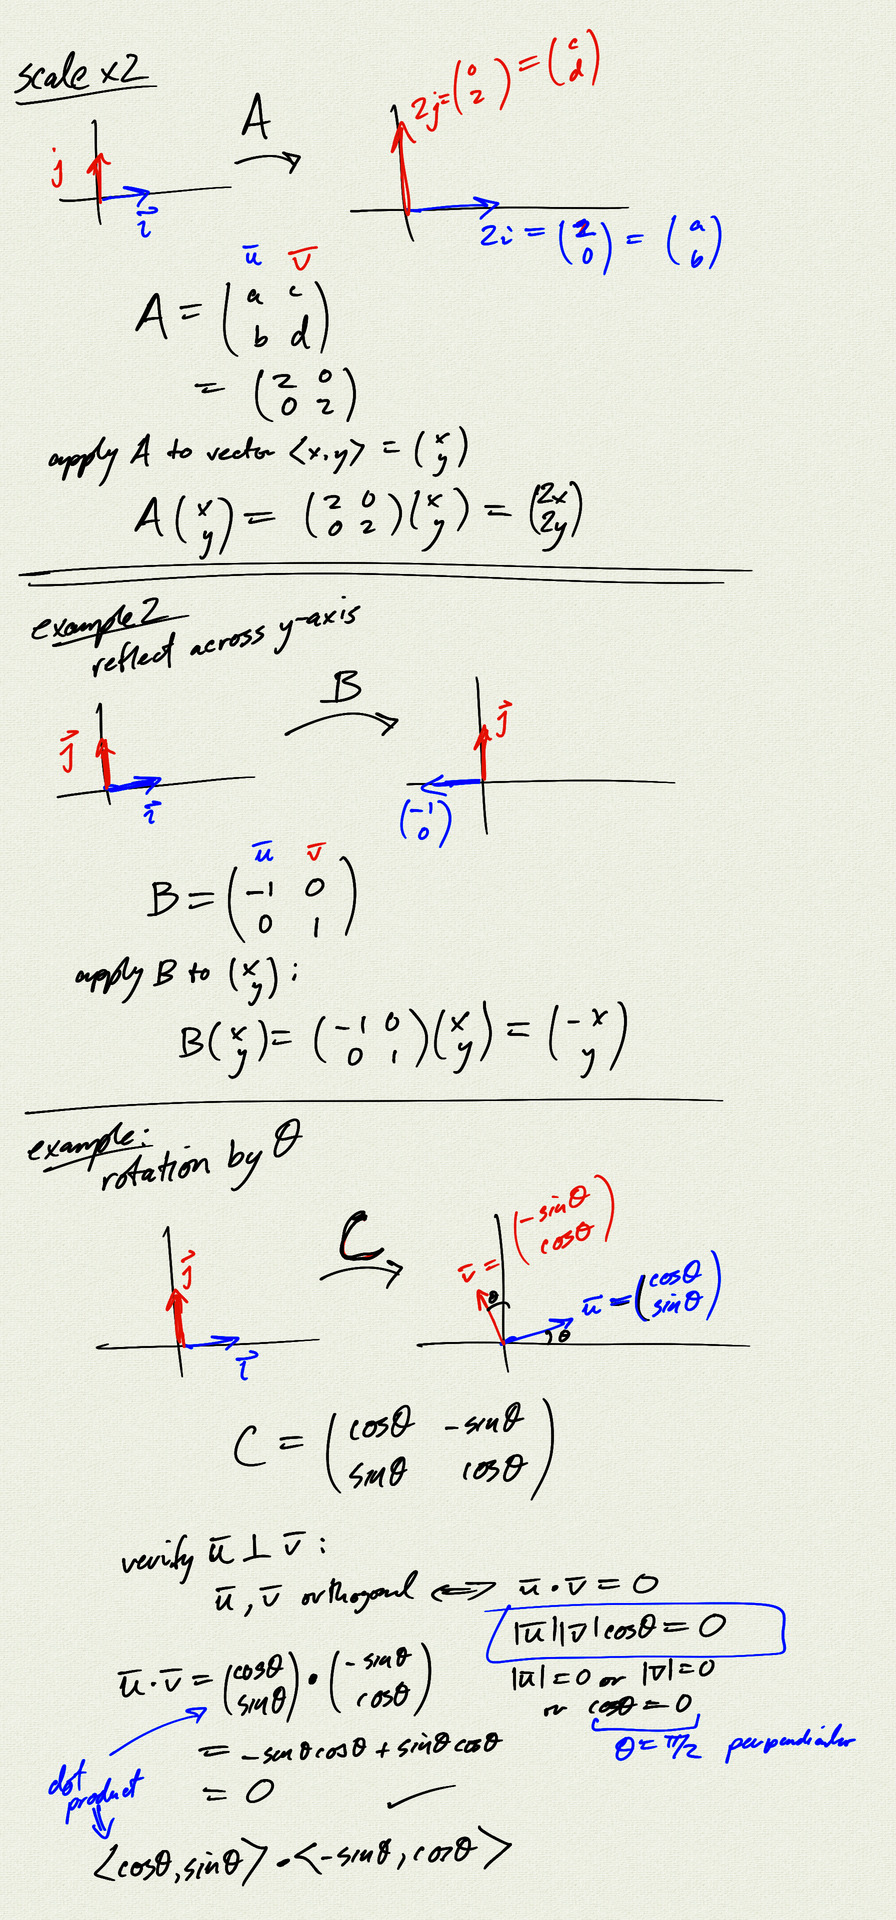 scale x2
j
i⃗
A
2j = (0 2) = (c d)
2i = (2 0) = (a b)
u̅ v̅
A = (a c
b d)
= (2 0
0 2)
apply A to vector <x,y> = (x y)
A (x y) = (2 0 0 2)(x y) = (2x 2y)
example 2
reflect across y-axis
j⃗
i⃗
B
j⃗
(-1 0)
u̅ v̅
B = (-1 0
0 1)
apply B to (x y) :
B(x y) = (-1 0 0 1)(x y) = (-x y)
example:
rotation by θ
j⃗
i⃗
C
v̅ = (-sinθ cosθ)
θ
u̅ = (cosθ sinθ)
θ
C = (cosθ -sinθ
sinθ cosθ)
verify u̅ ⊥ v̅ :
u̅, v̅ orthogonal ⟺ u̅ · v̅ = 0
|u̅||v̅| cosθ = 0
|u̅| = 0 or |v̅| = 0
or cosθ = 0
θ = π/2 perpendicular
u̅ · v̅ = (cosθ sinθ) · (-sinθ cosθ)
= -sinθ cosθ + sinθ cosθ
= 0 ✓
dot
product
<cosθ, sinθ> · <-sinθ, cosθ>